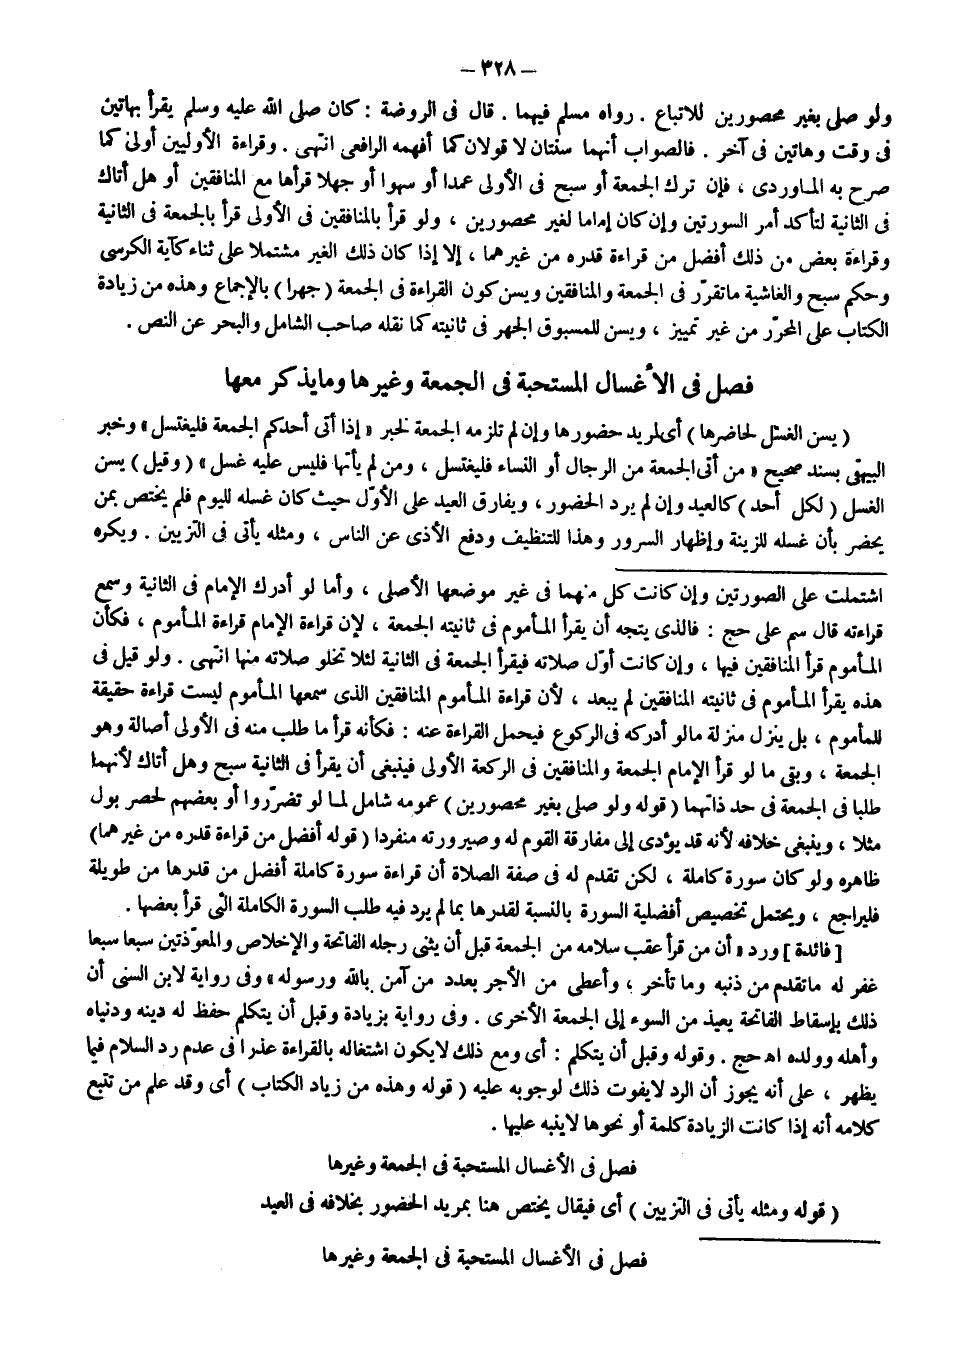 – ٣٢٨ –
ولو صلى بغير محصورين للاتباع . رواه مسلم فيهما . قال فى الروضة : كان صلى الله عليه وسلم يقرأ بهاتين
فى وقت وهاتين فى آخر . فالصواب أنهما سنتان لا قولان كما أفهمه الرافعى انتهى . وقراءة الأوليين أولى كما
صرح به المـاوردى ، فإن ترك الجمعة أو سبح فى الأولى عمدا أو سهوا أو جهلا قرأها مع المنافقين أو هل أتاك
فى الثانية لتأكد أمر السورتين وإن كان إماما لغير محصورين ، ولو قرأ بالمنافقين فى الأولى قرأ بالجمعة فى الثانية
وقراءة بعض من ذلك أفضل من قراءة قدره من غيرهما ، إلا إذا كان ذلك الغير مشتملا على ثناء كآية الكرسى
وحكم سبح والغاشية ماتقرّر فى الجمعة والمنافقين ويسن كون القراءة فى الجمعة ( جهرا ) بالإجماع وهذه من زيادة
الكتاب على المحرّر من غير تمييز ، ويسن للمسبوق الجهر فى ثانيته كما نقله صاحب الشامل والبحر عن النص .
فصل فى الأغسال المستحبة فى الجمعة وغيرها ومايذكر معها
( يسن الغسل لحاضرها ) أى لمريد حضورها وإن لم تلزمه الجمعة لخبر « إذا أتى أحدكم الجمعة فليغتسل » وخبر
البيهقى بسند صحيح « من أتى الجمعة من الرجال أو النساء فليغتسل ، ومن لم يأتها فليس عليه غسل » ( وقيل ) يسن
الغسل ( لكل أحد ) كالعيد وإن لم يرد الحضور ، ويفارق العيد على الأوّل حيث كان غسله لليوم فلم يختص بمن
يحضر بأن غسله للزينة وإظهار السرور وهذا للتنظيف ودفع الأذى عن الناس ، ومثله يأتى فى التزيين . ويكره
اشتملت على الصورتين وإن كانت كل منهما فى غير موضعها الأصلى ، وأما لو أدرك الإمام فى الثانية وسمع
قراءته قال سم على حج : فالذى يتجه أن يقرأ المـأموم فى ثانيته الجمعة ، لإن قراءة الإمام قراءة المـأموم ، فكأن
المـأموم قرأ المنافقين فيها ، وإن كانت أوّل صلاته فيقرأ الجمعة فى الثانية لئلا تخلو صلاته منها انتهى . ولو قيل فى
هذه يقرأ المـأموم فى ثانيته المنافقين لم يبعد ، لأن قراءة المـأموم المنافقين الذى سمعها المـأموم ليست قراءة حقيقة
للمأموم ، بل ينزل منزلة مالو أدركه فى الركوع فيحمل القراءة عنه : فكأنه قرأ ما طلب منه فى الأولى أصالة وهو
الجمعة ، وبقى ما لو قرأ الإمام الجمعة والمنافقين فى الركعة الأولى فينبغى أن يقرأ فى الثانية سبح وهل أتاك لأنهما
طلبا فى الجمعة فى حد ذاتهما ( قوله ولو صلى بغير محصورين ) عمومه شامل لمـا لو تضرّروا أو بعضهم لحصر بول
مثلا ، وينبغى خلافه لأنه قد يؤدى إلى مفارقة القوم له وصيرورته منفردا ( قوله أفضل من قراءة قدره من غيرهما )
ظاهره ولو كان سورة كاملة ، لكن تقدم له فى صفة الصلاة أن قراءة سورة كاملة أفضل من قدرها من طويلة
فليراجع ، ويحتمل تخصيص أفضلية السورة بالنسبة لقدرها بما لم يرد فيه طلب السورة الكاملة التى قرأ بعضها .
[ فائدة ] ورد « أن من قرأ عقب سلامه من الجمعة قبل أن يثنى رجله الفاتحة والإخلاص والمعوّذتين سبعا سبعا
غفر له ماتقدم من ذنبه وما تأخر ، وأعطى من الأجر بعدد من آمن بالله ورسوله » وفى رواية لابن السنى أن
ذلك بإسقاط الفاتحة يعيذ من السوء إلى الجمعة الأخرى . وفى رواية بزيادة وقبل أن يتكلم حفظ له دينه ودنياه
وأهله وولده اهـ حج . وقوله وقبل أن يتكلم : أى ومع ذلك لايكون اشتغاله بالقراءة عذرا فى عدم رد السلام فيما
يظهر ، على أنه يجوز أن الرد لايفوت ذلك لوجوبه عليه ( قوله وهذه من زياد الكتاب ) أى وقد علم من تتبع
كلامه أنه إذا كانت الزيادة كلمة أو نحوها لاينبه عليها .
فصل فى الأغسال المستحبة فى الجمعة وغيرها
( قوله ومثله يأتى فى التزيين ) أى فيقال يختص هنا بمريد الحضور بخلافه فى العيد
فصل فى الأغسال المستحبة فى الجمعة وغيرها